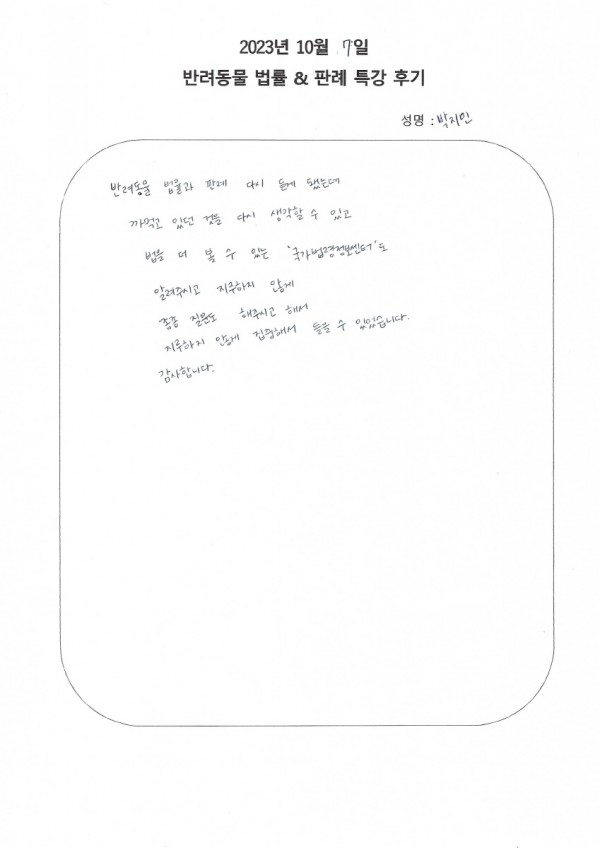 2023년 10월 7일
반려동물 법률 & 판례 특강 후기
성명 : 박지인
반려동물 법률과 판례 다시 듣게 됐는데
까먹고 있던 것을 다시 생각할 수 있고
법을 더 볼 수 있는 '국가법령정보센터'도
알려주시고 지루하지 않게
종종 질문도 해주시고 해서
지루하지 않게 집중해서 들을 수 있었습니다.
감사합니다.